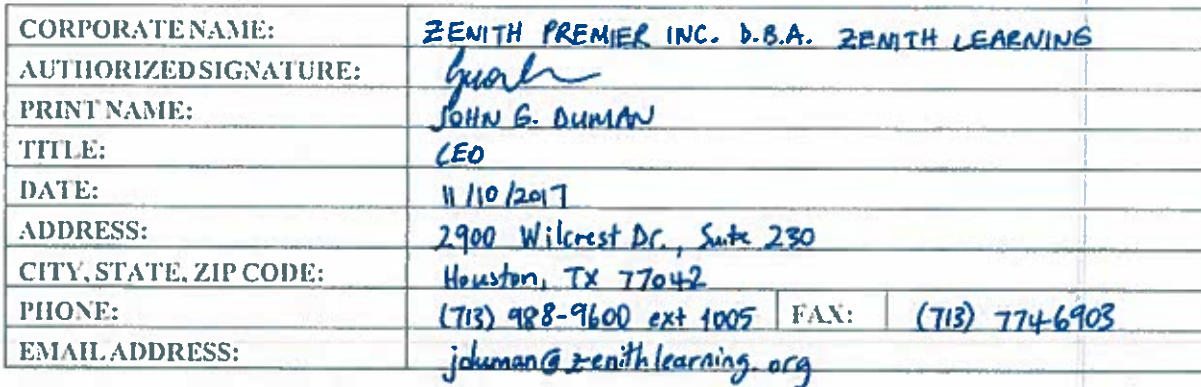 CORPORATE NAME: ZENITH PREMIER INC. D.B.A. ZENITH LEARNING
AUTHORIZED SIGNATURE:
PRINT NAME: JOHN G. DUMAN
TITLE: CEO
DATE: 11/10/2017
ADDRESS: 2900 Wilcrest Dr., Suite 230
CITY, STATE, ZIP CODE: Houston, TX 77042
PHONE: (713) 988-9600 ext 1005 FAX: (713) 774-6903
EMAIL ADDRESS: jduman@zenithlearning.org